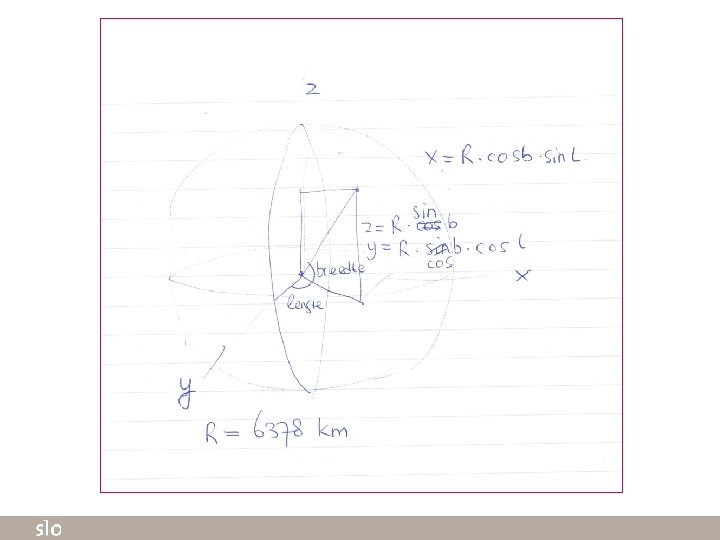 z
x = R · cosb · sin L
sin
z = R · cos b
y = R · sinb · cos l
cos
breedte
x
lengte
y
R = 6378 km
slo